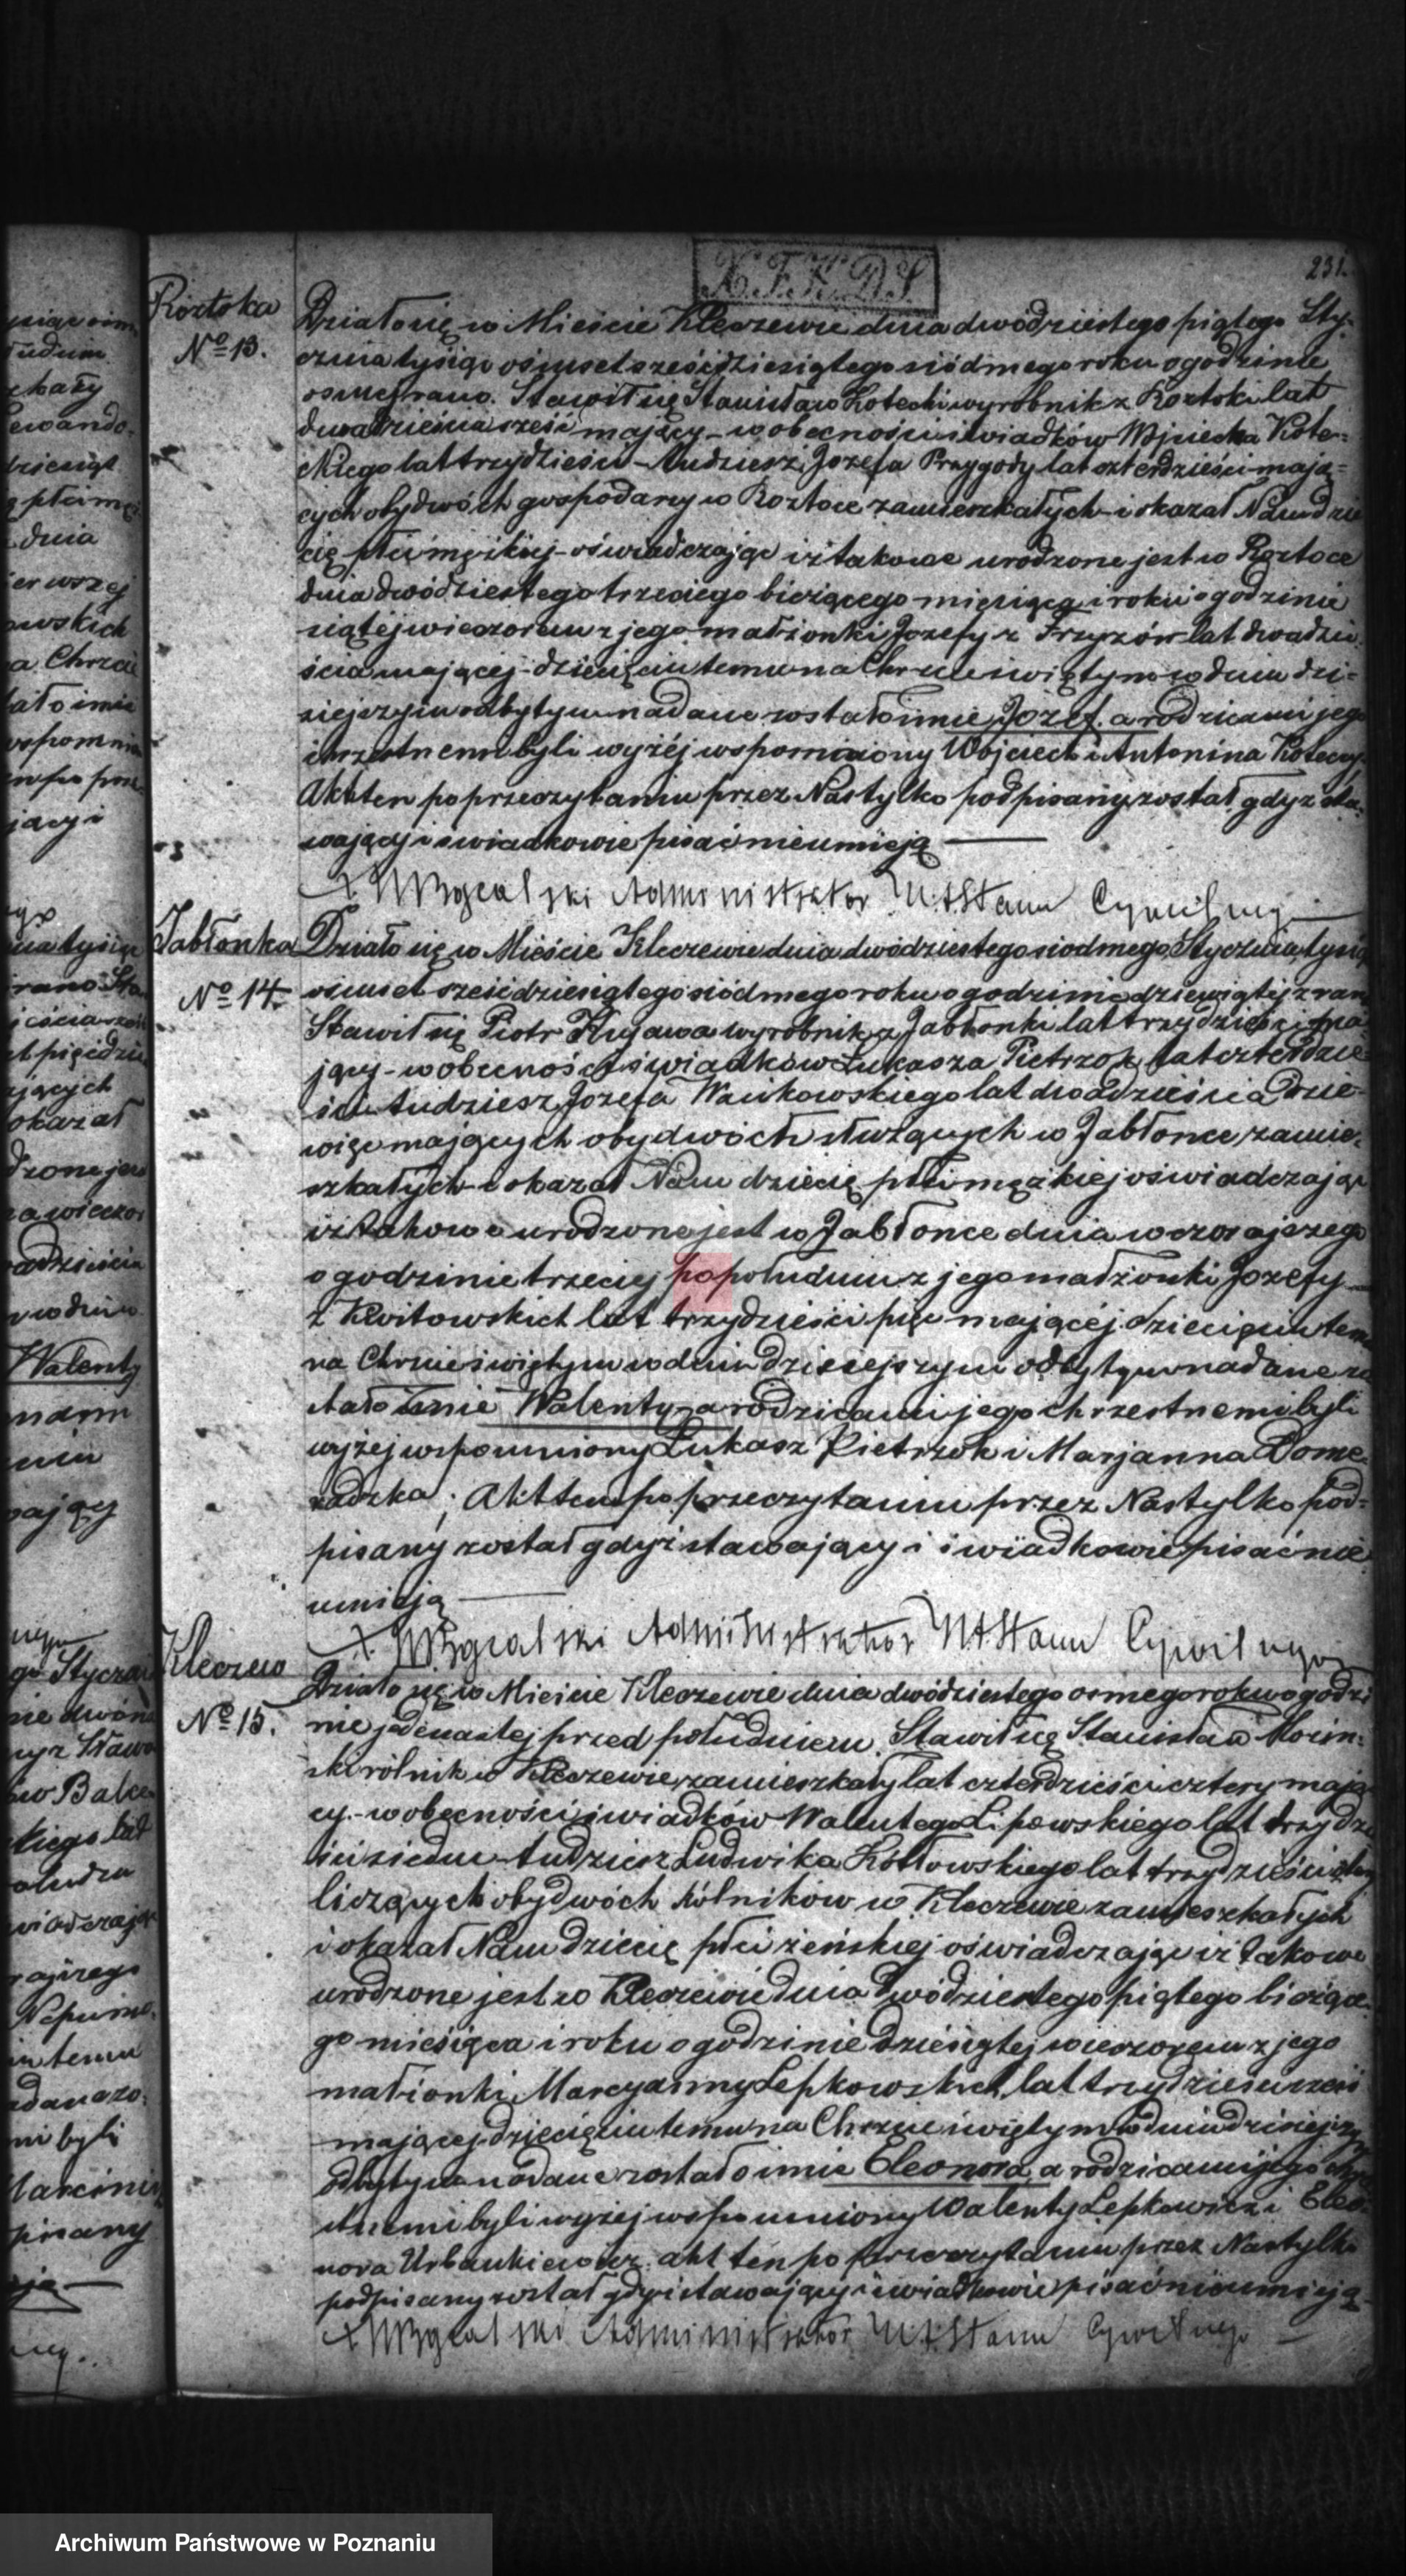 231.
N. F. K. D. S.
Roztoka
Nº 13.
Działo się w Mieście Kleczewie dnia dwódziestego piątego Sty-
cznia tysiąc ośmset sześćdziesiątego siódmego roku o godzinie
osmej rano. Stawił się Stanisław Kotecki wyrobnik z Roztoki lat
dwadzieścia sześć mający – w obecności świadków Wojciecha Kote-
ckiego lat trzydzieści – tudziesz Jozefa Przygody lat czterdzieści mają-
cych obydwóch gospodarzy w Roztoce zamieszkałych – i okazał Nam dzie
cię płci męzkiej – oświadczając iż takowe urodzone jest w Roztoce
dnia dwódziestego trzeciego bieżącego miesiąca i roku o godzinie
wieczorem z jego małżonki Jozefy z lat dwadzie
ścia mającej – dziecięciu temu na Chrzcie świętym w dniu dzi-
siejszym odbytym nadane zostało imie Jozef, a rodzicami jego
chrzestnemi byli wyżéj wspomniony Wojciech i Antonina Koteccy
Akt ten po przeczytaniu przez Nas tylko podpisany został, gdyz sta-
wający i świadkowie pisać nie umieją
Administrator U. A. Stanu Cywilnego
Jabłonka
Nº 14.
Działo się w Mieście Kleczewie dnia dwódziestego siodmego Stycznia tysiąc
ośmset sześćdziesiątego siódmego roku o godzinie dziewiątej z rana
Stawił się Piotr Kujawa wyrobnik z Jabłonki lat trzydzieści ma
jący – w obecności świadków Łukasza Pietrzok lat czterdzie-
ści tudziesz Jozefa Wańkowskiego lat dwadzieścia dzie-
więc mających obydwóch służących w Jabłonce zamie-
szkałych – i okazał Nam dziecię płci męzkiej oświadczając
iż takowe urodzone jest w Jabłonce dnia wczorajszego
o godzinie trzeciej popołudniu z jego małżonki Jozefy
z Kwitowskich lat trzydzieści pięc mającéj dziecięciu temu
na Chrzcie świętym w dniu dzisiejszym odbytym nadane zo
stało imie Walenty, a rodzicami jego chrzestnemi byli
wyżej wspomniony Łukasz Pietrzok i Marjanna Dome-
radzka; Akt ten po przeczytaniu przez Nas tylko pod-
pisany został gdyż stawający i świadkowie pisać nie
umieją
Administrator U. A. Stanu Cywilnego
Kleczew
Nº 15.
Działo się w Mieście Kleczewie dnia dwódziestego osmego roku o godzi
nie jedenastej przed południem. Stawił się Stanisław Morin-
ski rólnik w Kleczewie zamieszkały lat czterdzieści cztery mają
cy – w obecności świadków Walentego Lipowskiego lat trzydzie
ści siedm – tudziesz Ludwika Kotłowskiego lat trzydzieści
liczących obydwóch rólników w Kleczewie zamieszkałych
i okazał Nam dziecię płci żeńskiej oświadczając iż takowe
urodzone jest w Kleczewie dnia dwódziestego piątego bieżące
go miesiąca i roku o godzinie dziesiątej wieczorem z jego
małżonki Maryanny Lepkowskich lat trzydzieści sześć
mającej – dziecięciu temu na Chrzcie świętym w dniu dzisiejszym
odbytym nadane zostało imie Eleonora, a rodzicami jego chrze
stnemi byli wyżej wspomniony Walenty Lepkowicz i Eleo-
nora Urbankiewicz. akt ten po przeczytaniu przez Nas tylko
podpisany został gdyż stawający i świadkowie pisać nie umieją
Administrator U. A. Stanu Cywilnego
Archiwum Państwowe w Poznaniu